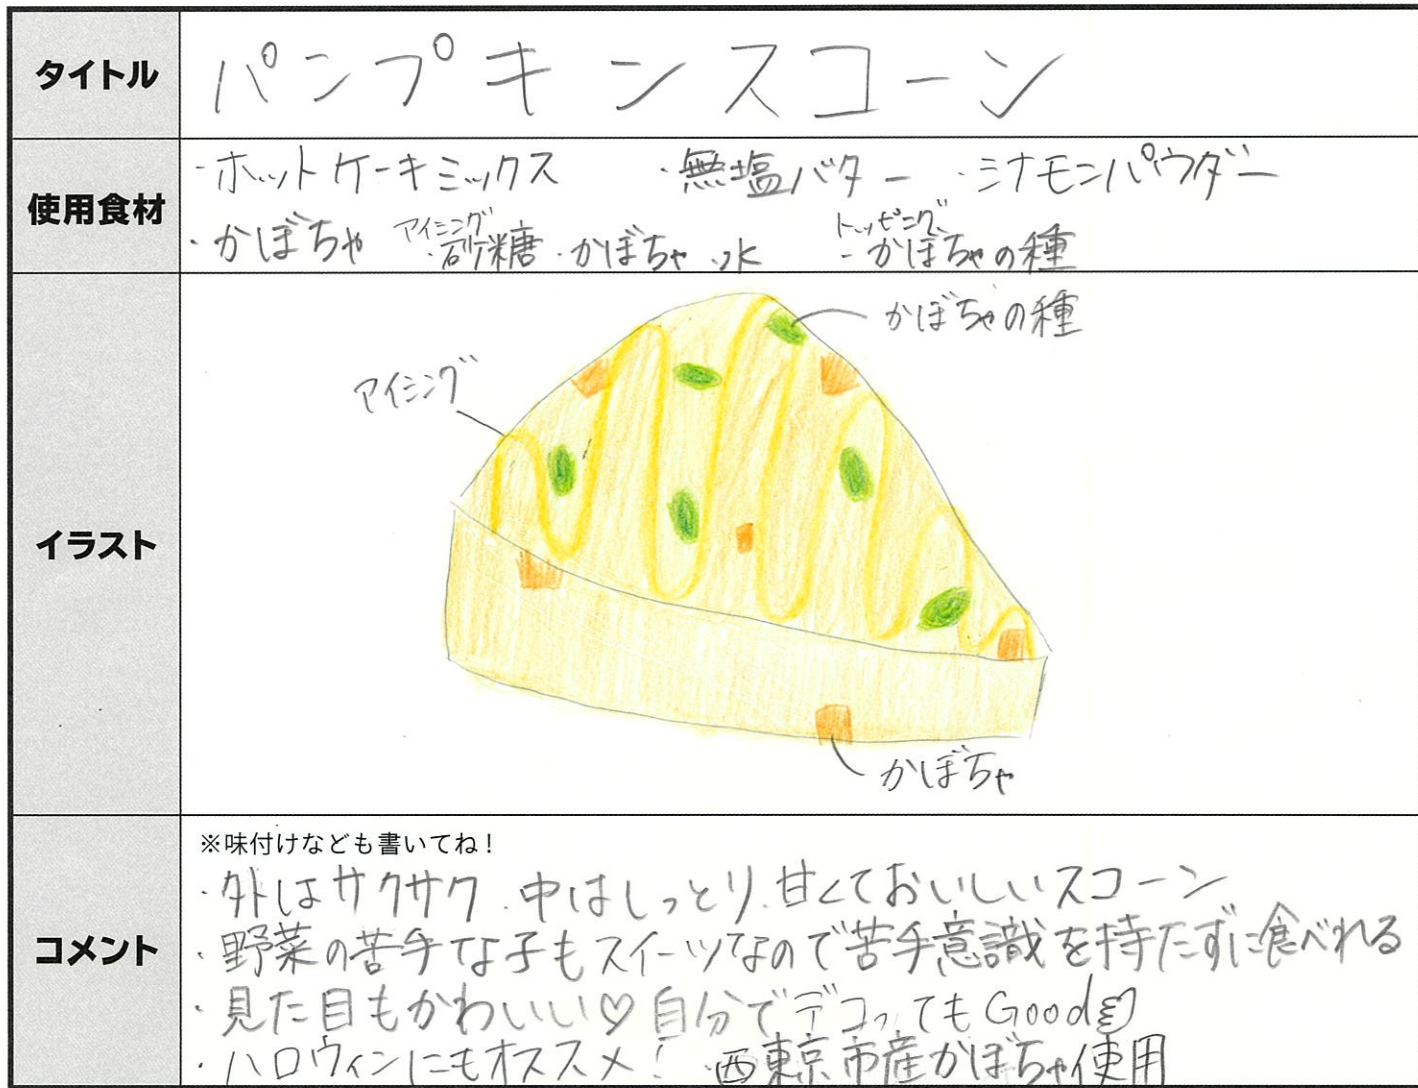 タイトル
パンプキンスコーン
使用食材
・ホットケーキミックス ・無塩バター ・シナモンパウダー
アイシング トッピング
・かぼちゃ ・砂糖・かぼちゃ・水 ・かぼちゃの種
イラスト
かぼちゃの種
アイシング
かぼちゃ
コメント
※味付けなども書いてね！
・外はサクサク、中はしっとり、甘くておいしいスコーン
・野菜の苦手な子もスイーツなので苦手意識を持たずに食べれる
・見た目もかわいい♡自分でデコってもGood👍
・ハロウィンにもオススメ！ ・西東京市産かぼちゃ使用